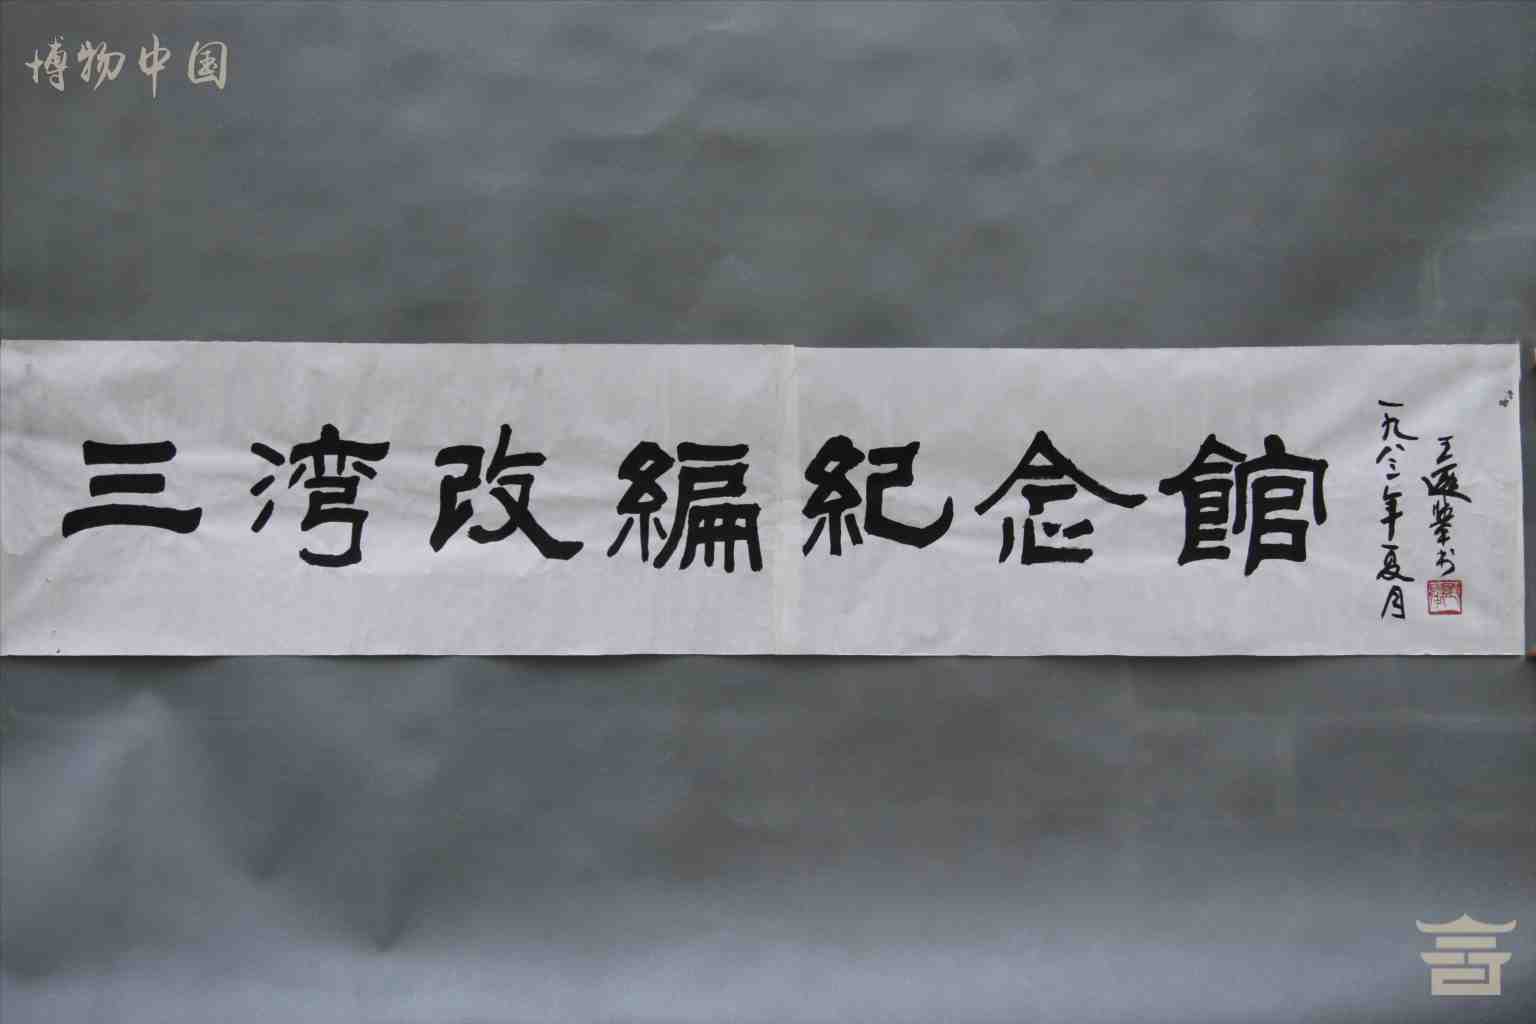 博物中国
三湾改編紀念館
一九八三年夏月
王遐举书